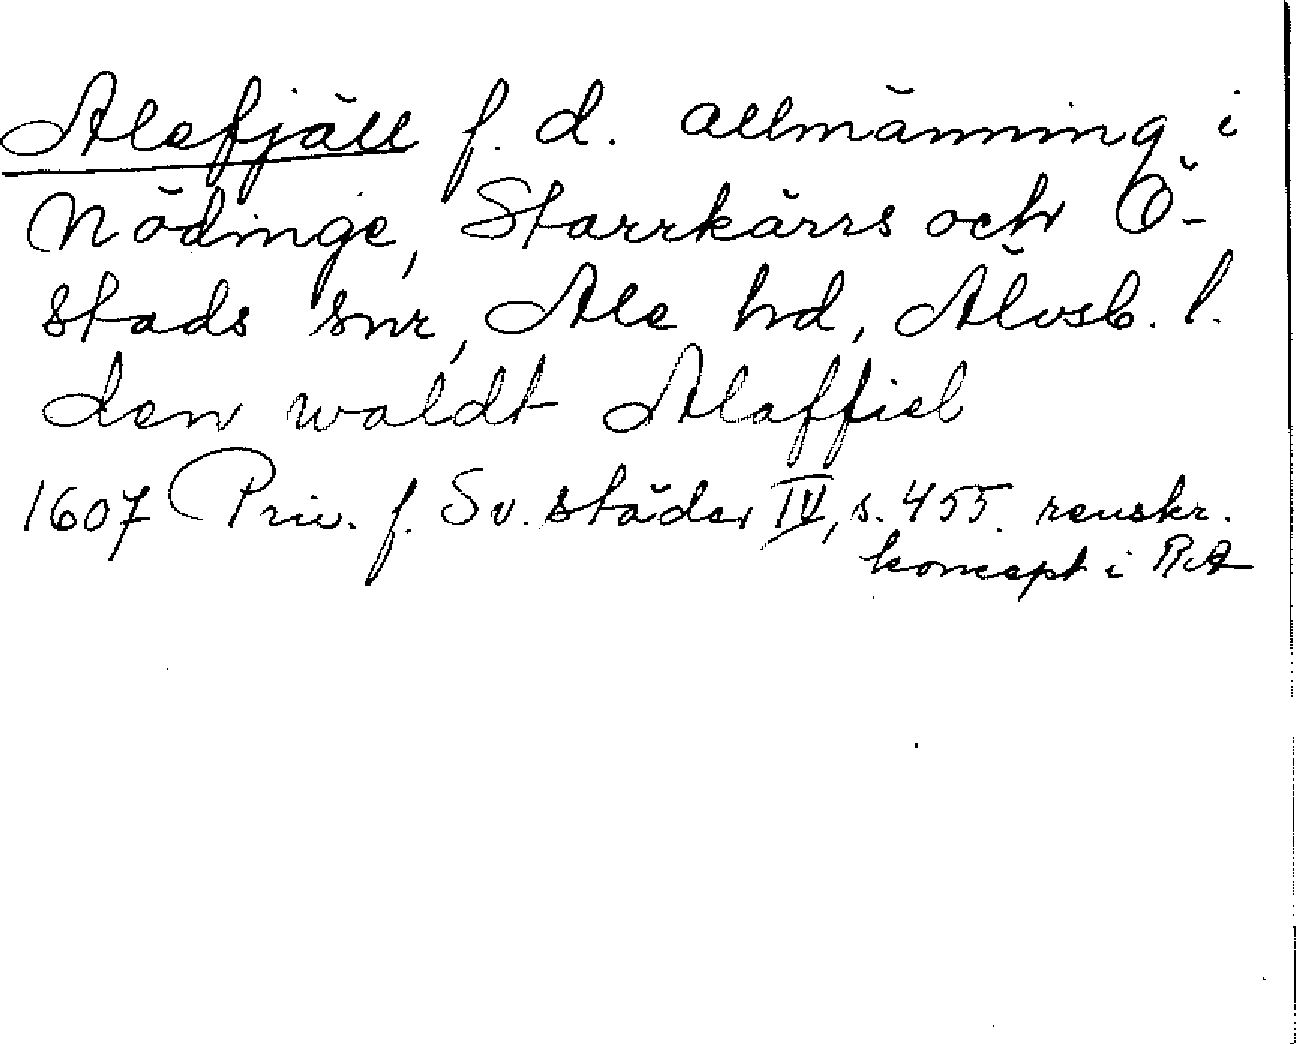 Alefjäll f. d. allmänning i
Nödinge, Starrkärrs och Ö-
stads snr, Ale hd, Älvsb. l.
den waldt Alaffiel
1607 Priv. f. Sv. städer IV, s. 455. renskr.
koncept i RA